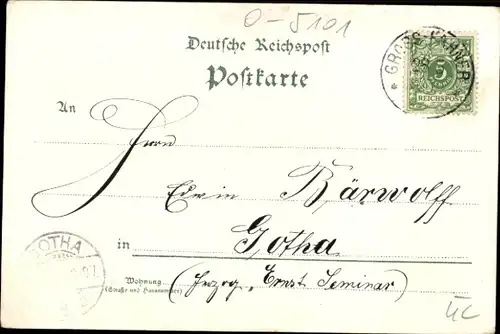 O-5101
Deutsche Reichspost
Postkarte
* GROSS
5
REICHSPOST
An
Herrn
Edwin Bärwolff
in Gotha
Wohnung (Herzog. Ernst Seminar)
(Straße und Hausnummer)
GOTHA